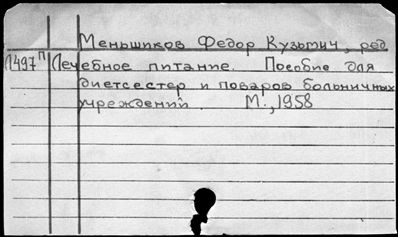 Меньшиков Федор Кузьмич, ред.
Л497п Лечебное питание. Пособие для
диетсестер и поваров больничных
учреждений. М., 1958